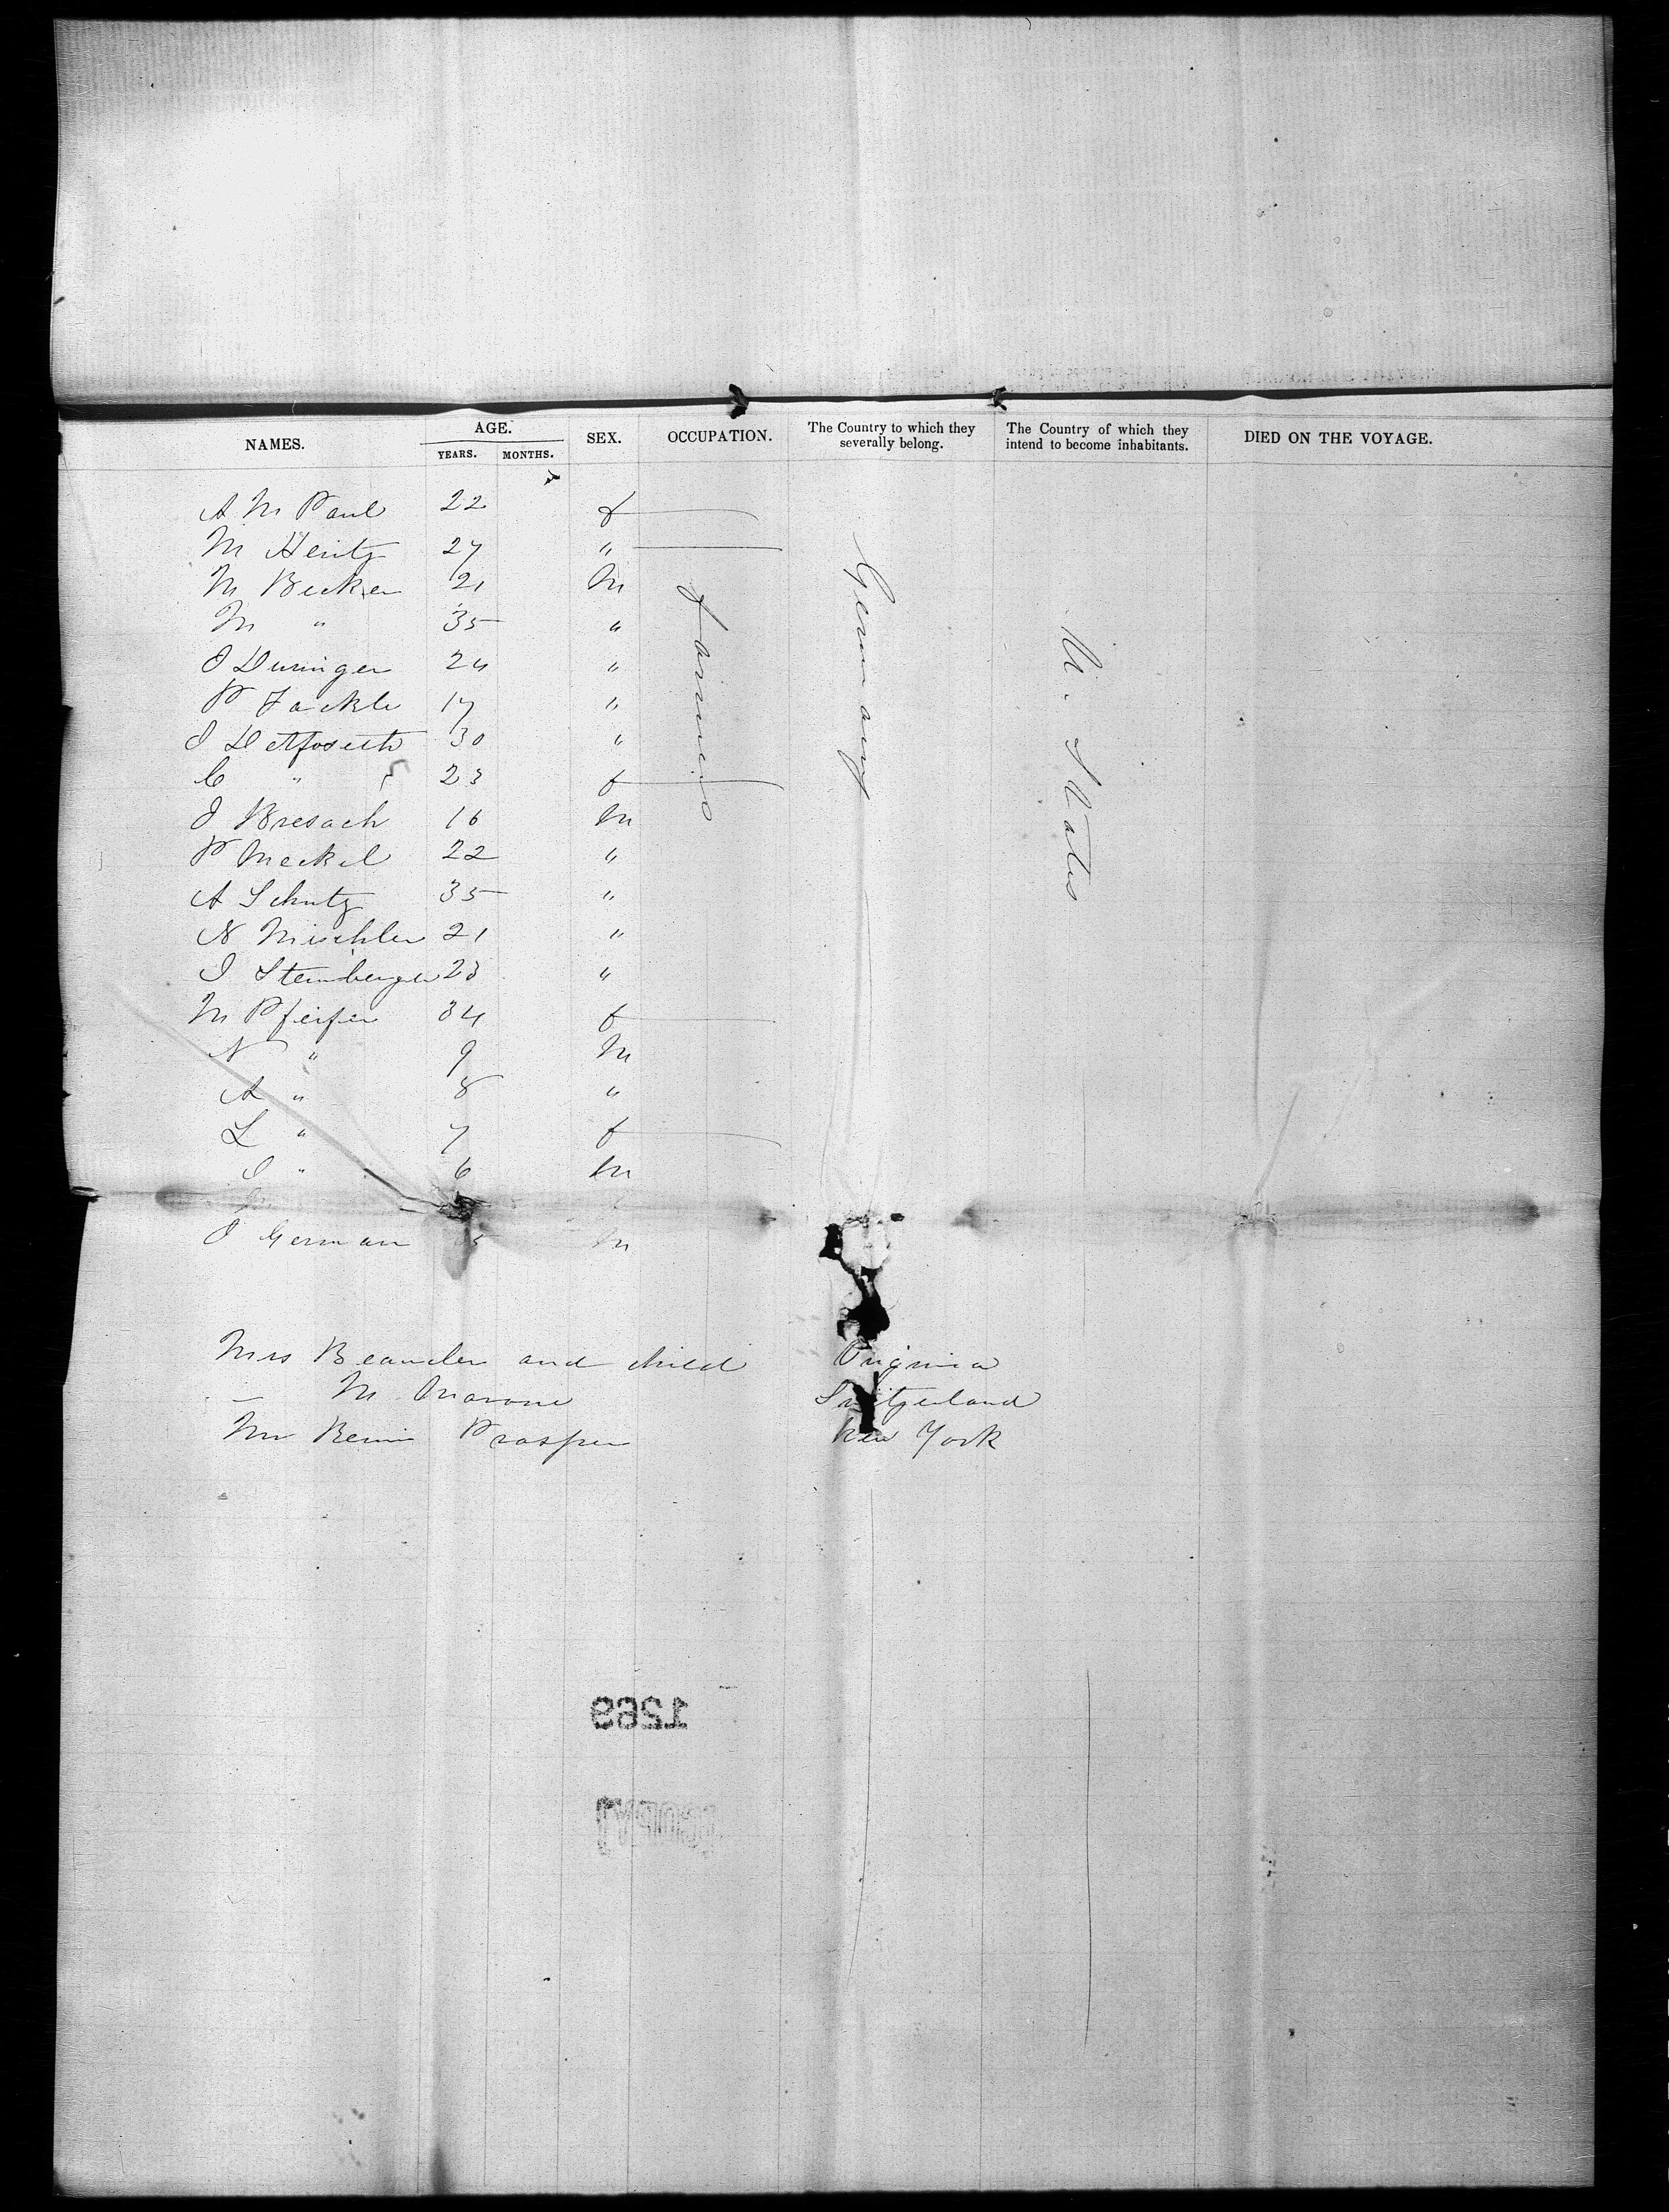 NAMES. AGE. YEARS. MONTHS. SEX. OCCUPATION. The Country to which they severally belong. The Country of which they intend to become inhabitants. DIED ON THE VOYAGE.
A M Paul 22 f
M Hentz 27 "
M Becker 21 M
M " 35 "
J Duringer 24 "
P Fackle 17 "
J 30 "
C " 23 f
J Bresach 16 M
P Meckel 22 "
A Schutz 35 "
N Mischler 21 "
J Steinberger 23 "
M Pfeifer 34 f
N " 9 M
A " 8 "
L " 7 f
J " 6 M
J German M
Farmers
Germany
U. States
Mrs Beauden and child Virginia
— M Marone Switzerland
Mr Prosper New York
1269